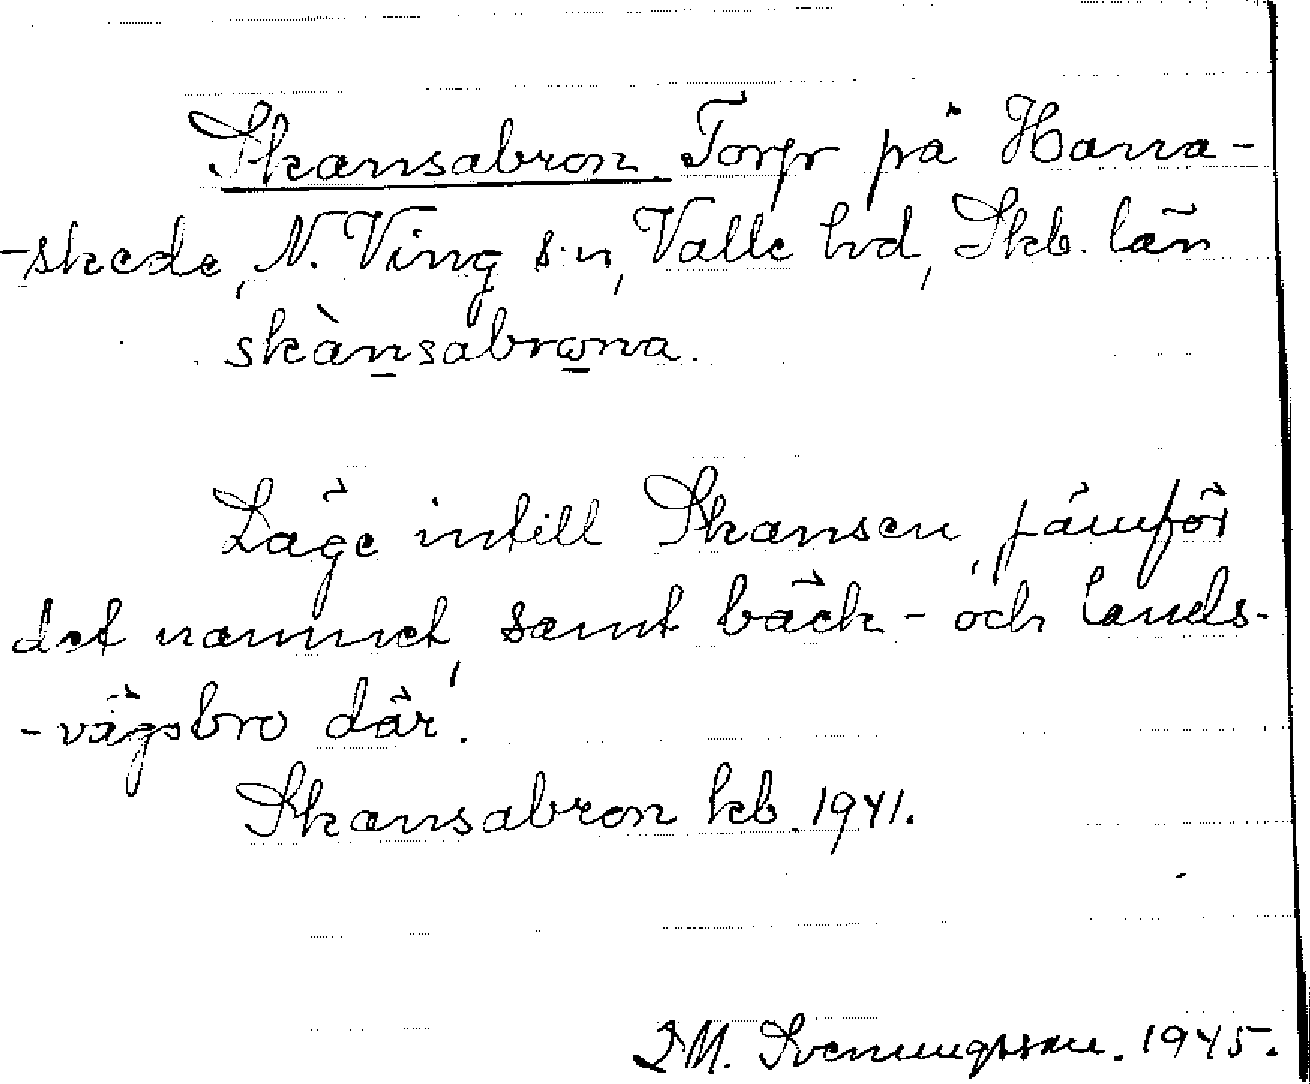 Skansabron. Torp på Harra-
-skede, N. Ving s:n, Valle hd, Skb. län
skànsabrωna.
Läge intill Skansen, jämför
det namnet, samt bäck- och lands-
-vägsbro där.
Skansabron kb. 1941.
M. Svenungsson. 1945.